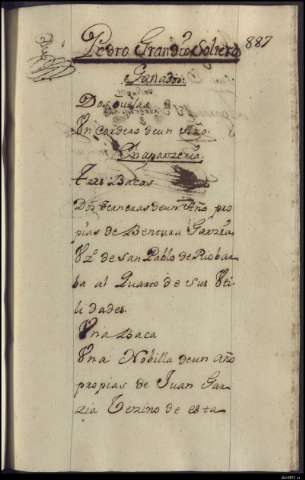 Pedro Grandío Soltero 887
Ganado
Dos
Un Cordero de un Año
Aparzería
Tres Bacas
Dos terneras de un Año pro
pias de Bentura Garzia
Vzº de San Pablo de Riobar
ba al Quarto de sus Uti
lidades
Una Baca
Una Nobilla de un año
propias de Juan Gar
zia Vezino de esta